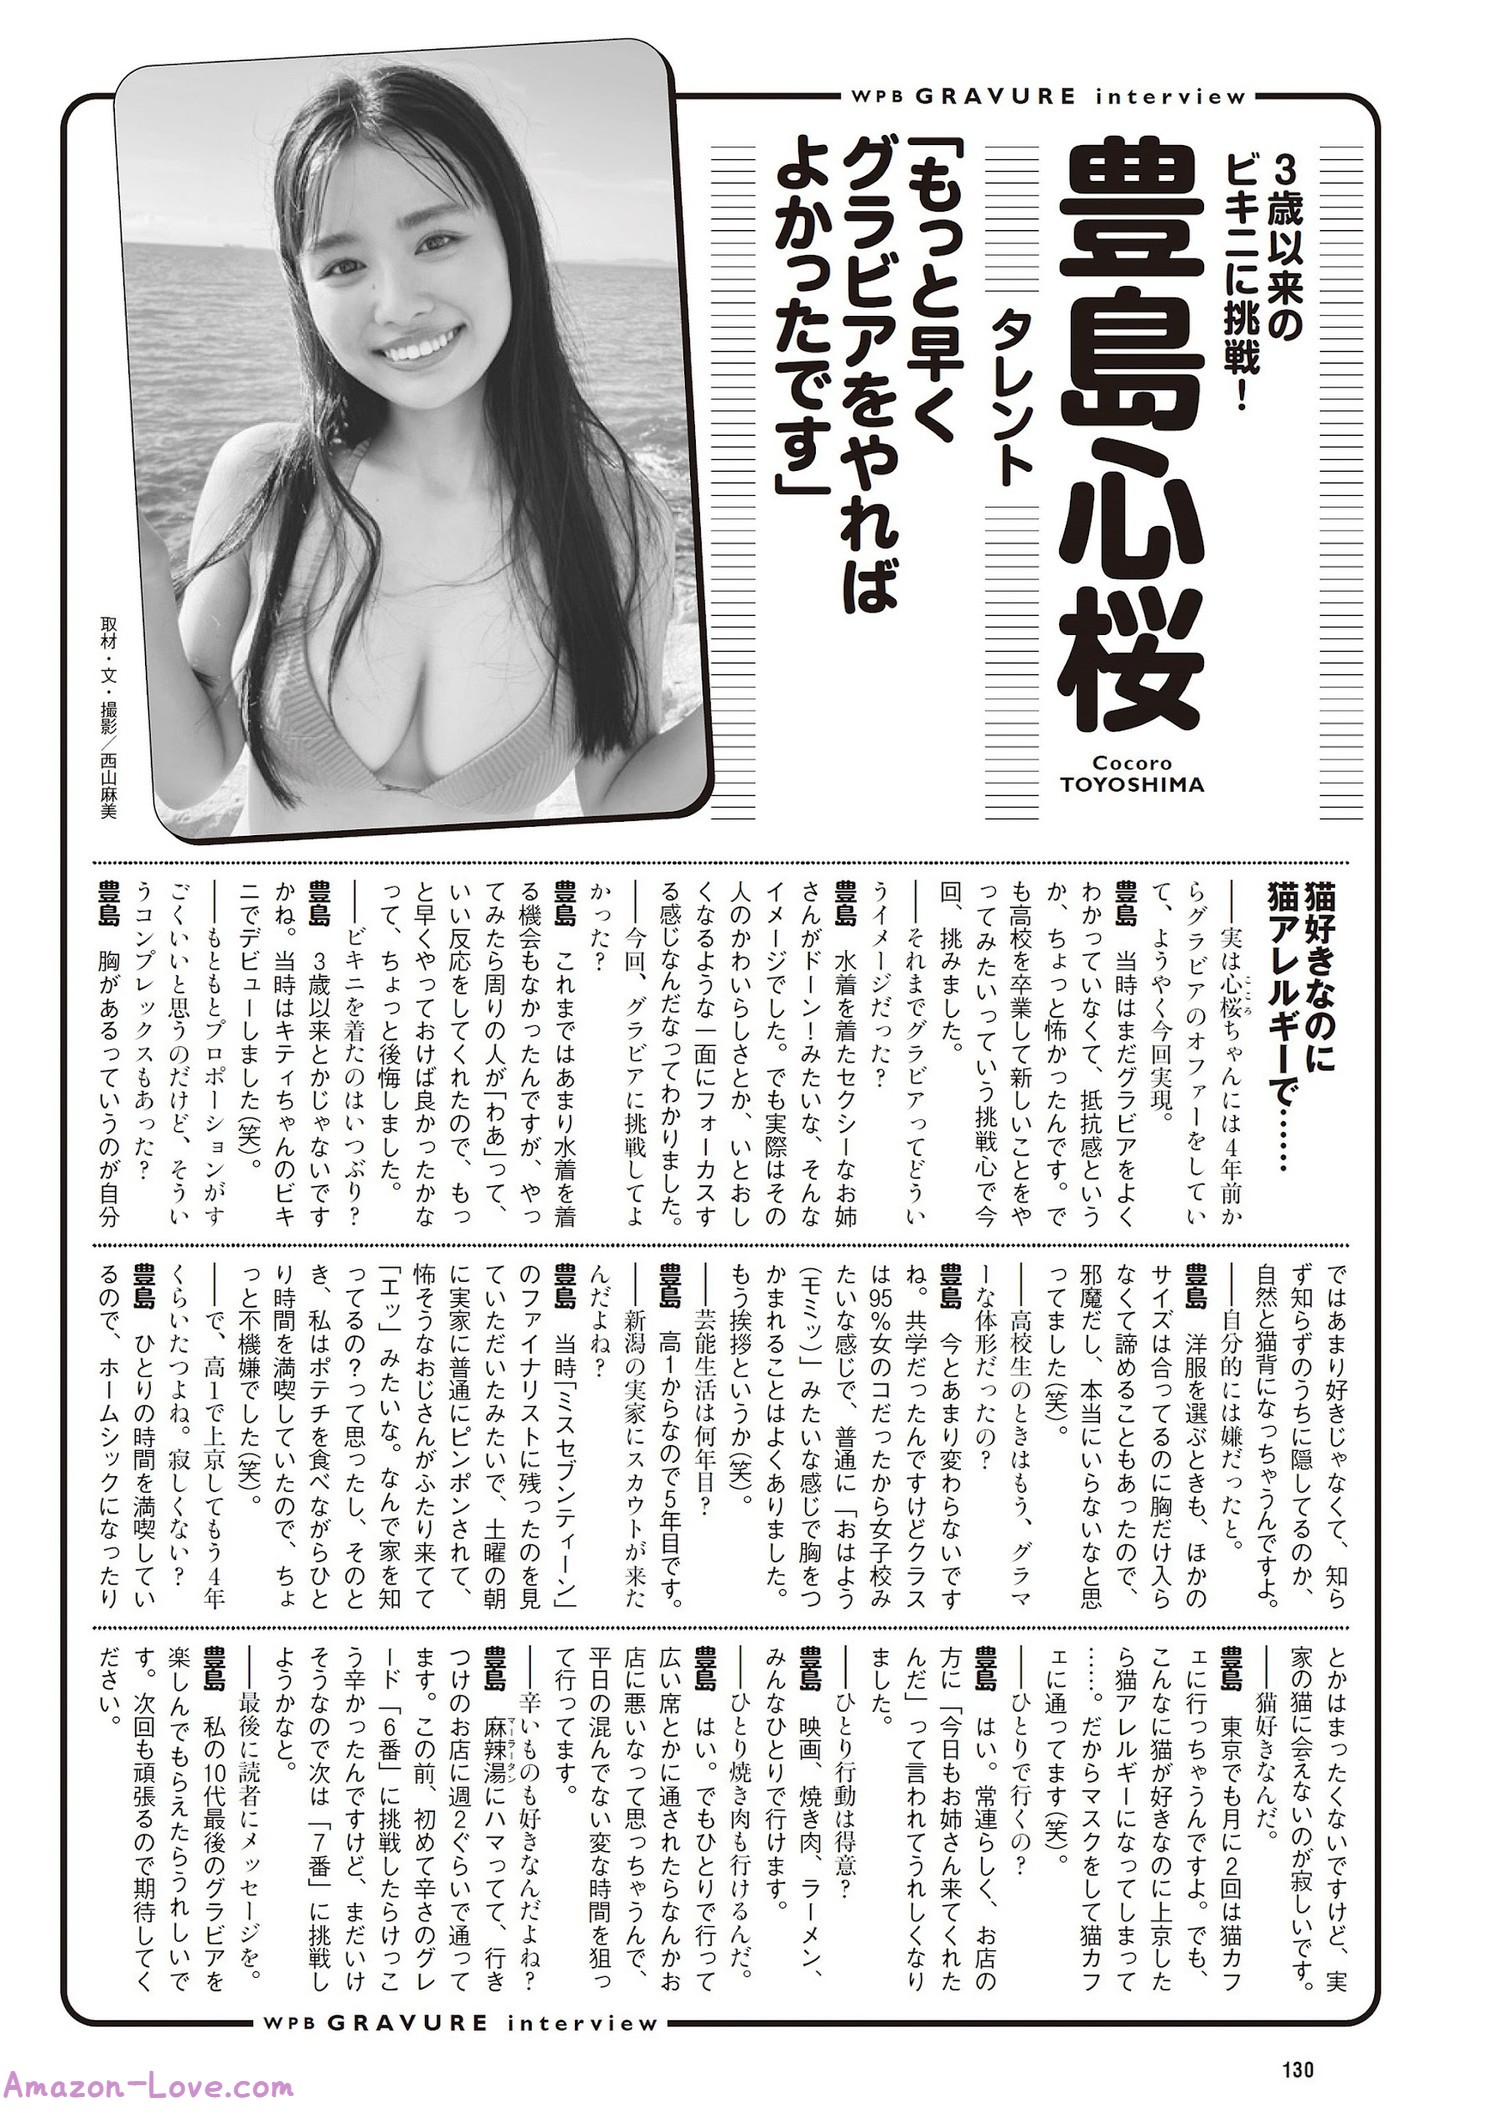 WPB GRAVURE interview
3歳以来の
ビキニに挑戦！
豊島心桜
Cocoro
TOYOSHIMA
タレント
「もっと早く
グラビアをやれば
よかったです」
取材・文・撮影／西山麻美
猫好きなのに
猫アレルギーで……
──実は心桜ちゃんには4年前か
こころ
らグラビアのオファーをしてい
て、ようやく今回実現。
豊島　当時はまだグラビアをよく
わかっていなくて、抵抗感という
か、ちょっと怖かったんです。で
も高校を卒業して新しいことをや
ってみたいっていう挑戦心で今
回、挑みました。
──それまでグラビアってどうい
うイメージだった？
豊島　水着を着たセクシーなお姉
さんがドーン！みたいな、そんな
イメージでした。でも実際はその
人のかわいらしさとか、いとおし
くなるような一面にフォーカスす
る感じなんだなってわかりました。
──今回、グラビアに挑戦してよ
かった？
豊島　これまではあまり水着を着
る機会もなかったんですが、やっ
てみたら周りの人が「わあ」って、
いい反応をしてくれたので、もっ
と早くやっておけば良かったかな
って、ちょっと後悔しました。
──ビキニを着たのはいつぶり？
豊島　3歳以来とかじゃないです
かね。当時はキティちゃんのビキ
ニでデビューしました(笑)。
──もともとプロポーションがす
ごくいいと思うのだけど、そうい
うコンプレックスもあった？
豊島　胸があるっていうのが自分
ではあまり好きじゃなくて、知ら
ず知らずのうちに隠してるのか、
自然と猫背になっちゃうんですよ。
──自分的には嫌だったと。
豊島　洋服を選ぶときも、ほかの
サイズは合ってるのに胸だけ入ら
なくて諦めることもあったので、
邪魔だし、本当にいらないなと思
ってました(笑)。
──高校生のときはもう、グラマ
ーな体形だったの？
豊島　今とあまり変わらないです
ね。共学だったんですけどクラス
は95％女のコだったから女子校み
たいな感じで、普通に「おはよう
(モミッ)」みたいな感じで胸をつ
かまれることはよくありました。
もう挨拶というか(笑)。
──芸能生活は何年目？
豊島　高1からなので5年目です。
──新潟の実家にスカウトが来た
んだよね？
豊島　当時「ミスセブンティーン」
のファイナリストに残ったのを見
ていただいたみたいで、土曜の朝
に実家に普通にピンポンされて、
怖そうなおじさんがふたり来てて
「エッ」みたいな。なんで家を知
ってるの？って思ったし、そのと
き、私はポテチを食べながらひと
り時間を満喫していたので、ちょ
っと不機嫌でした(笑)。
──で、高1で上京してもう4年
くらいたつよね。寂しくない？
豊島　ひとりの時間を満喫してい
るので、ホームシックになったり
とかはまったくないですけど、実
家の猫に会えないのが寂しいです。
──猫好きなんだ。
豊島　東京でも月に2回は猫カフ
ェに行っちゃうんですよ。でも、
こんなに猫が好きなのに上京した
ら猫アレルギーになってしまって
……。だからマスクをして猫カフ
ェに通ってます(笑)。
──ひとりで行くの？
豊島　はい。常連らしく、お店の
方に「今日もお姉さん来てくれた
んだ」って言われてうれしくなり
ました。
──ひとり行動は得意？
豊島　映画、焼き肉、ラーメン、
みんなひとりで行けます。
──ひとり焼き肉も行けるんだ。
豊島　はい。でもひとりで行って
広い席とかに通されたらなんかお
店に悪いなって思っちゃうんで、
平日の混んでない変な時間を狙っ
て行ってます。
──辛いものも好きなんだよね？
豊島　麻辣湯にハマってて、行き
マーラータン
つけのお店に週2ぐらいで通って
ます。この前、初めて辛さのグレ
ード「6番」に挑戦したらけっこ
う辛かったんですけど、まだいけ
そうなので次は「7番」に挑戦し
ようかなと。
──最後に読者にメッセージを。
豊島　私の10代最後のグラビアを
楽しんでもらえたらうれしいで
す。次回も頑張るので期待してく
ださい。
WPB GRAVURE interview
130
Amazon-Love.com